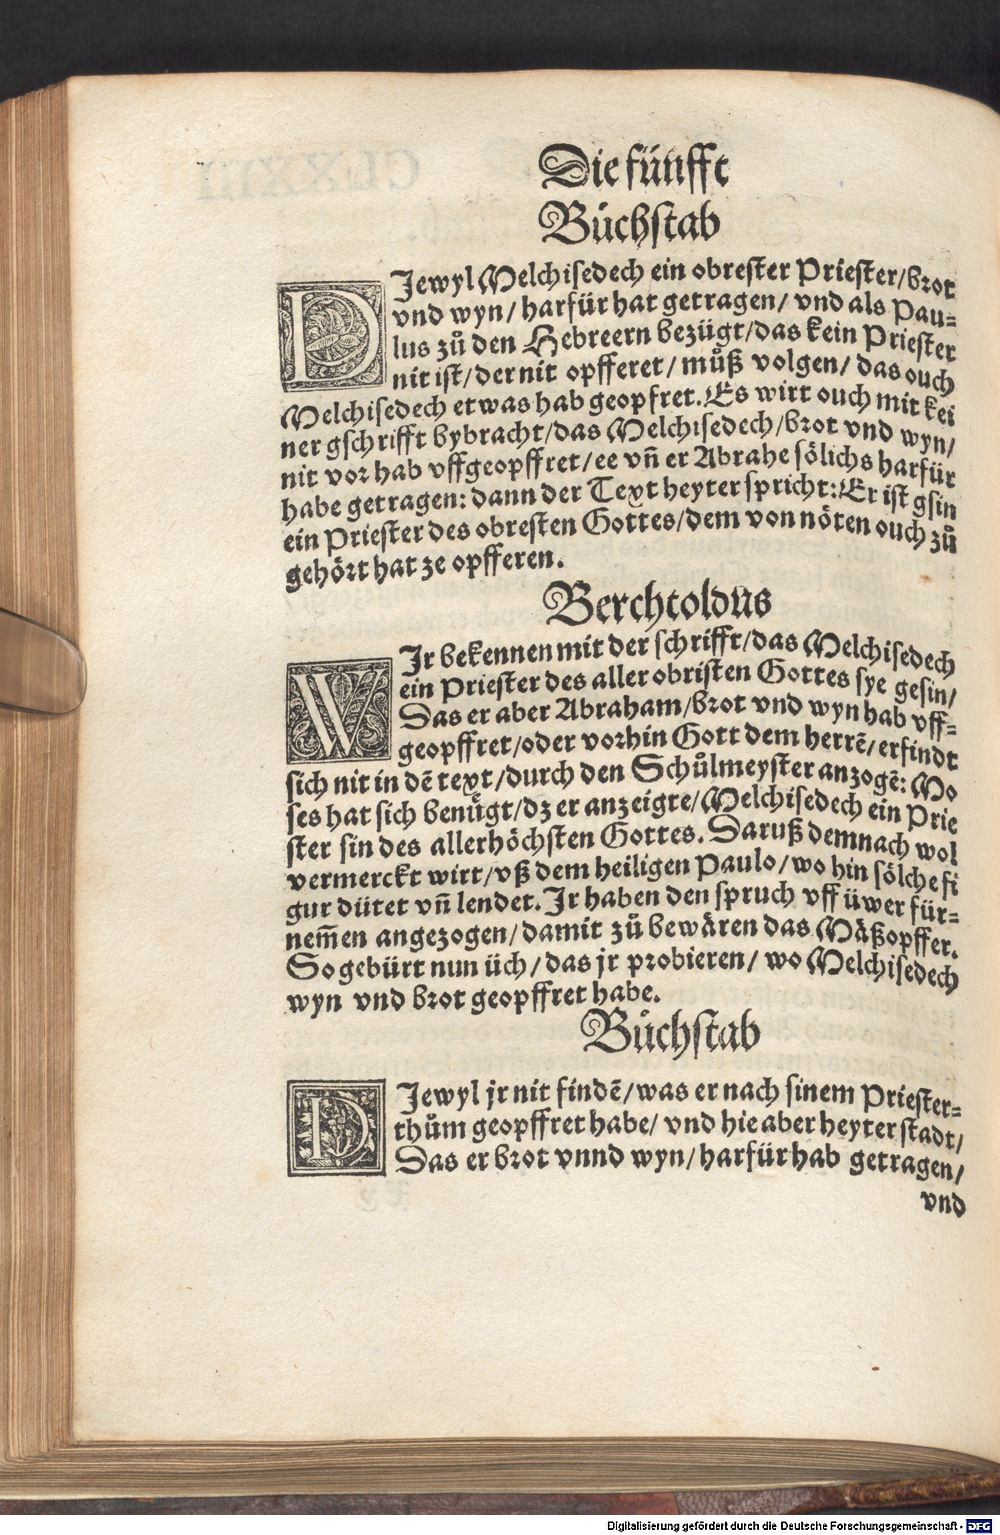 Die fünfft
Bůchstab
DJewyl Melchisedech ein obrester Priester/brot
vnd wyn/ harfür hat getragen/ vnd als Pau-
lus zů den Hebreern bezügt/das kein Priester
nit ist/der nit opfferet/ můß volgen/ das ouch
Melchisedech etwas hab geopfret. Es wirt ouch mit kei
ner gschrifft bybracht/das Melchisedech/brot vnd wyn/
nit vor hab vffgeopffret/ee vñ er Abrahe sölichs harfür
habe getragen: dann der Text heyter spricht: Er ist gsin
ein Priester des obresten Gottes/dem von nöten ouch zů
gehört hat ze opfferen.
Berchtoldus
WJr bekennen mit der schrifft/das Melchisedech
ein Priester des aller obristen Gottes sye gesin/
Das er aber Abraham/brot vnd wyn hab vff-
geopffret/oder vorhin Gott dem herrē/erfindt
sich nit in dē text/durch den Schůlmeyster anzogē: Mo
ses hat sich benügt/dz er anzeigte/Melchisedech ein Prie
ster sin des allerhöchsten Gottes. Daruß demnach wol
vermerckt wirt/vß dem heiligen Paulo/wo hin sölche fi
gur dütet vñ lendet. Jr haben den spruch vff üwer für-
nem̄en angezogen/damit zů bewären das Mäßopffer.
So gebürt nun üch/das jr probieren/ wo Melchisedech
wyn vnd brot geopffret habe.
Bůchstab
DJewyl jr nit findē/was er nach sinem Priester-
thům geopffret habe/ vnd hie aber heyter stadt/
Das er brot vnnd wyn/harfür hab getragen/
vnd
Digitalisierung gefördert durch die Deutsche Forschungsgemeinschaft - DFG